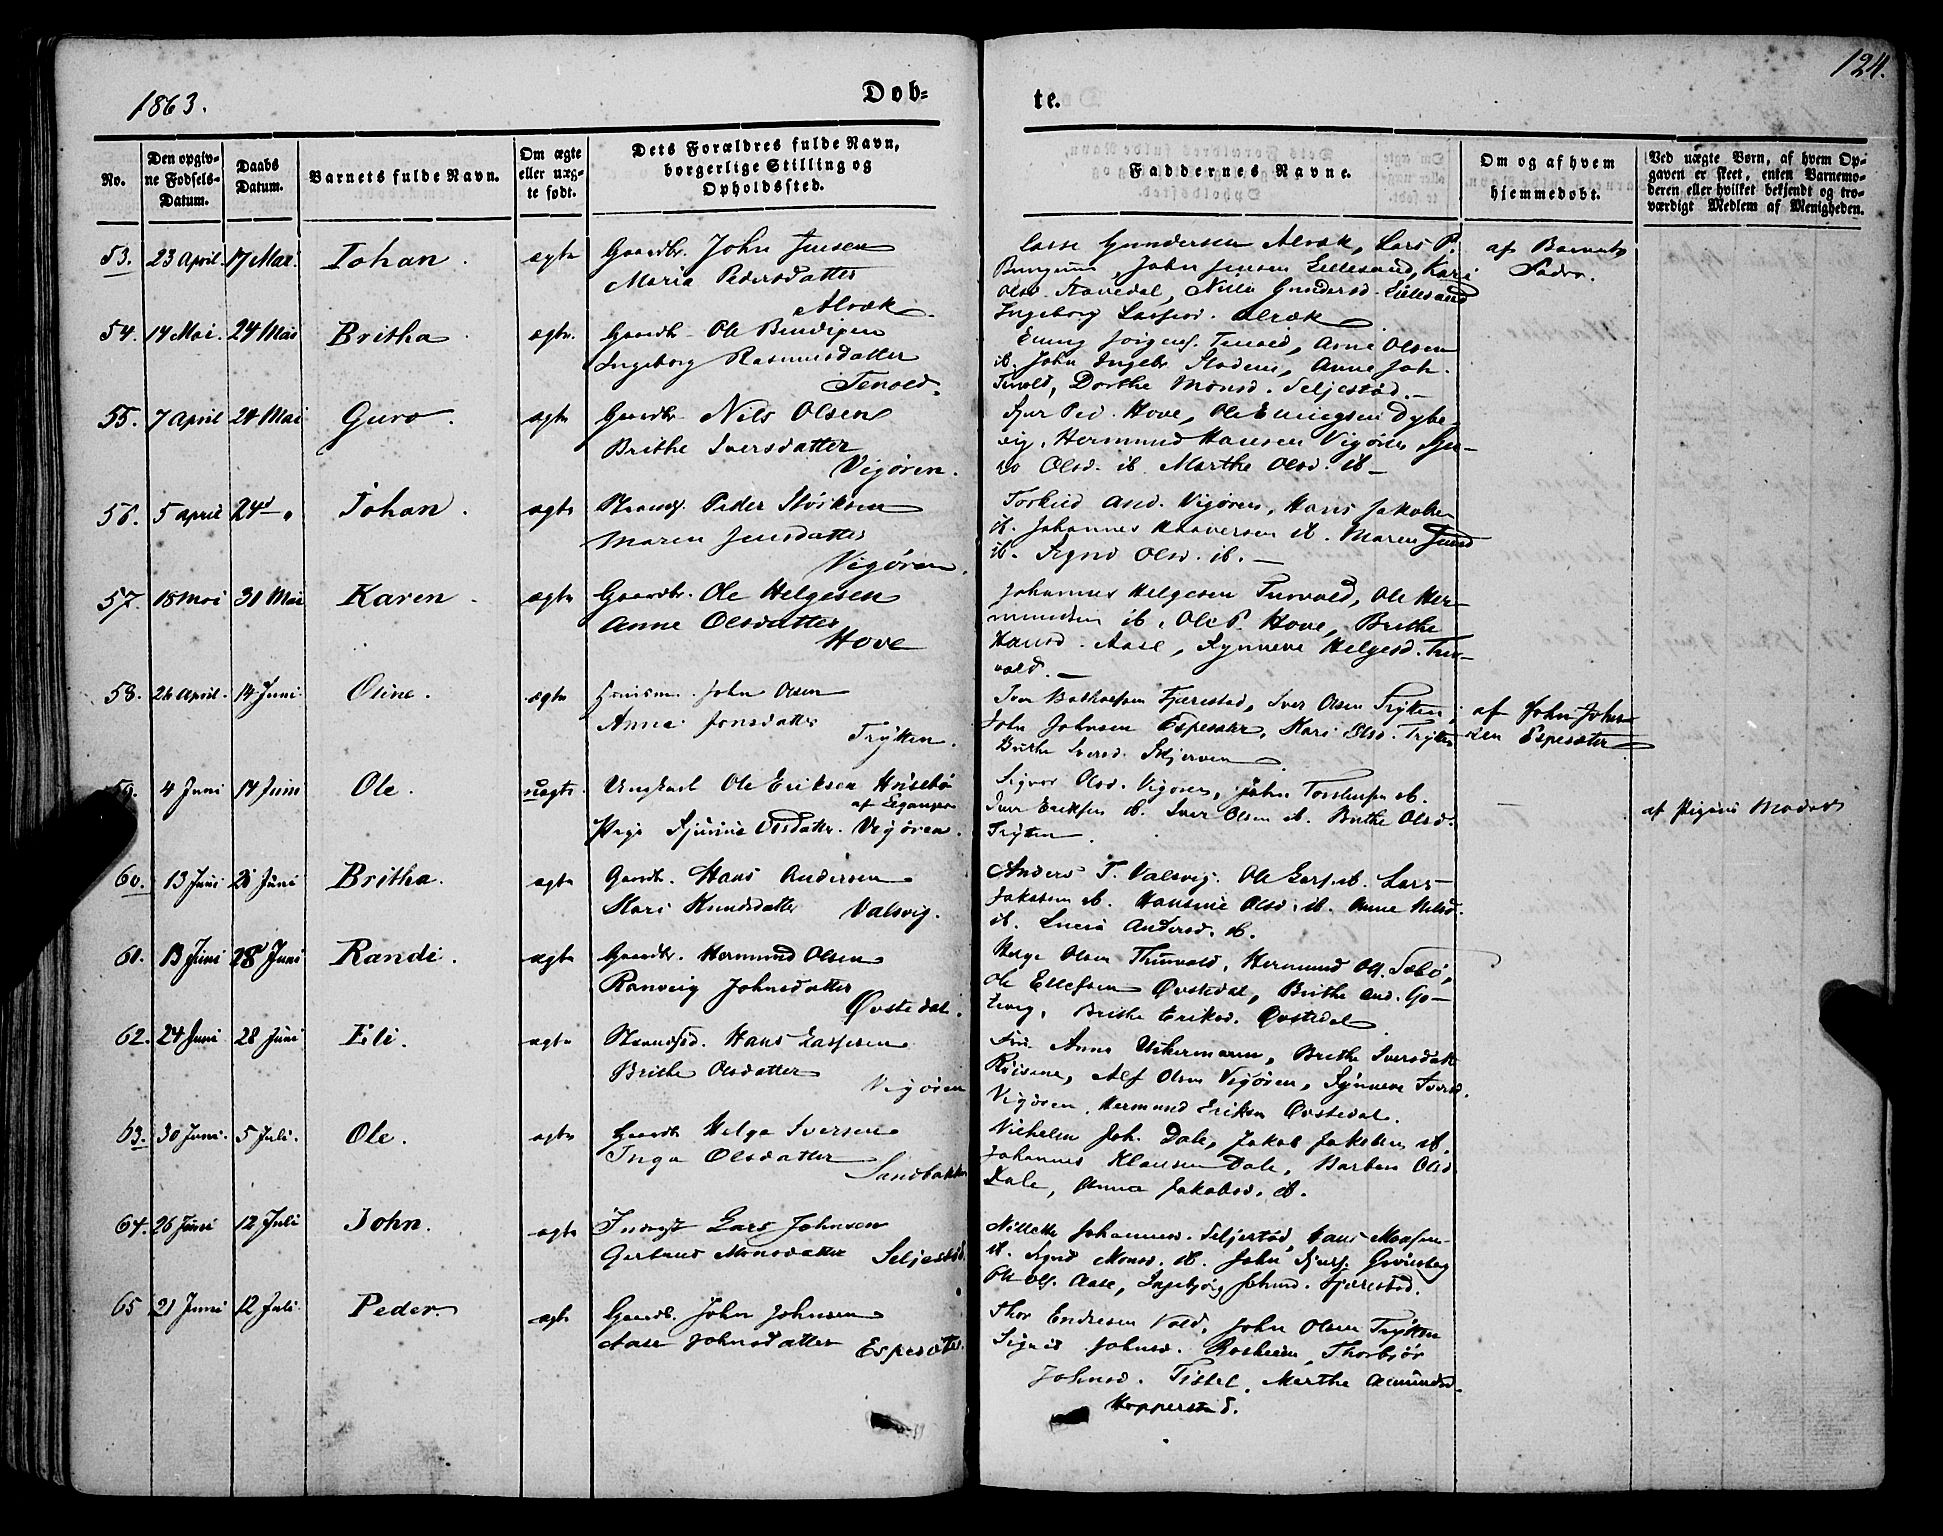 1863.
Døb-
te.
124.
No.
Den opgiv-
ne Fødsels-
Datum.
Daabs
Datum.
Barnets fulde Navn.
Om ægte
eller uæg-
te født.
Dets Forældres fulde Navn,
borgerlige Stilling og
Opholdssted.
Faddernes Navne.
Om og af hvem
hjemmedøbt.
Ved uægte Børn, af hvem Op-
gaven er skeet, enten Barnemo-
deren eller hvilket bekjendt og tro-
værdigt Medlem af Menigheden.
53. 23 April. 17 Mai. Johan. ægte Gaardbr. John Jensen
Maria Pedersdatter
Alræk.
Lasse Gundersen Alræk, Lars P.
John Jensen Lillesand, Kari
Olsd. Nille Gundersd. Lillesand
Ingeborg Lassesd. Alræk
af Barnets
Fader.
54. 14 Mai. 24 Mai Britha ægte. Gaardbr. Ole Bendixen
Ingeborg Rasmusdatter
Tenold.
Jørgens. Tenold, Arne Olsen
ib. John Anne Joh.
Tenold, Dorthe Monsd. Seljestød.
55. 7 April 24 Mai Guro. ægte Gaardbr. Nils Olsen
Brithe Iversdatter
Vigøren.
Sjur Ped. Hove, Ole Dybe-
vig, Hermund Hansen Vigøren
Olsd. ib. Marthe Olsd. ib
56. 5 April 24 " Johan. ægte Peder
Maren Jensdatter
Vigøren.
Torkild And. Vigøren, Hans Jakobs
ib. Johannes ib. Maren Jensd
ib. Signe Olsd. ib.
57. 18 Mai 31 Mai Karen ægte Gaardbr. Ole Helgesen
Anne Olsdatter
Hove
Johannes Helgesen Tenvold, Ole Her-
mundsen ib, Ole P. Hove, Brithe
Hansd. Aase, Synneve Helgesd. Ten-
vold.
58. 26 April. 14 Juni. Oline. ægte Huusm. John Olsen
Anna Jonsdatter
Trytten.
Fjærestad, Iver Olsen Trytten,
John Johnsen Espesæter, Kari Olsd. Trytten
Brithe Iversd. Skjerven
af John John-
sen Espesæter
59. 4 Juni 14 Juni Ole. uægte. Ungkarl Ole Eriksen
af
Pige Sjurine Olsdatter. Vigøren.
Olsd. Vigøren, John ib.
Eriksen ib. Iver Olsen ib. Brithe Olsd.
Trytten
af Pigens Moder
60. 13 Juni 28 Juni Britha. ægte Gaardbr. Hans Andersen
Kari Knudsdatter Valsvig.
Anders T. Valsvig. Ole ib. Lars
Jakobsen ib. Hansine Olsd. ib. Anne Nilsd.
ib. Lucia Andersd. ib.
61. 13 Juni 28 Juni Randi. ægte Gaardbr. Hermund Olsen
Ranveig Johnsdatter
Øvstedal.
Helge Olsen Tenvold, Hermund Ols. Sæbø,
Ole Ellefsen Øvstedal, Brithe And. Go-
tevig, Brithe Eriksd. Øvstedal
62. 24 Juni 28 Juni Eli. ægte Hans Lassesen
Brithe Olsdatter
Vigøren
Frk. Anna Uchermann, Brithe Iversdatt
Røisene, Alf Olsen Vigøren, Synneve Iversd.
Vigøren, Hermund Eriksen Øvstedal.
63. 30 Juni. 5 Juli. Ole. ægte Gaardbr Helge Iversen
Inga Olsdatter
Sandbakken
Vilhelm Joh. Dale, Jakob Jakobsen ib.
Johannes Klausen Dale, Barbara Olsd
Dale, Anna Jakobsd. ib.
64. 26 Juni 12 Juli John. ægte Inderst Lars Johnsen
Gertrud Monsdatter Seljestød
Johannesd. Seljestød, Hans Monsen
ib. Sigrid Monsd. ib. John Sjurs.
Ole Ols. Aase, Ingebjør Johnsd. Fjærestad.
65 21 Juni 12 Juli Peder ægte Gaardbr. John Johnsen
Aase Johnsdatter Espesæter.
Thor Endresen Vold, John Olsen Trytten
Sigrid Johnsd. Rosheim, Thorbjør
Johnsd. Tistel, Marthe Amundsd.
Hopperstad.